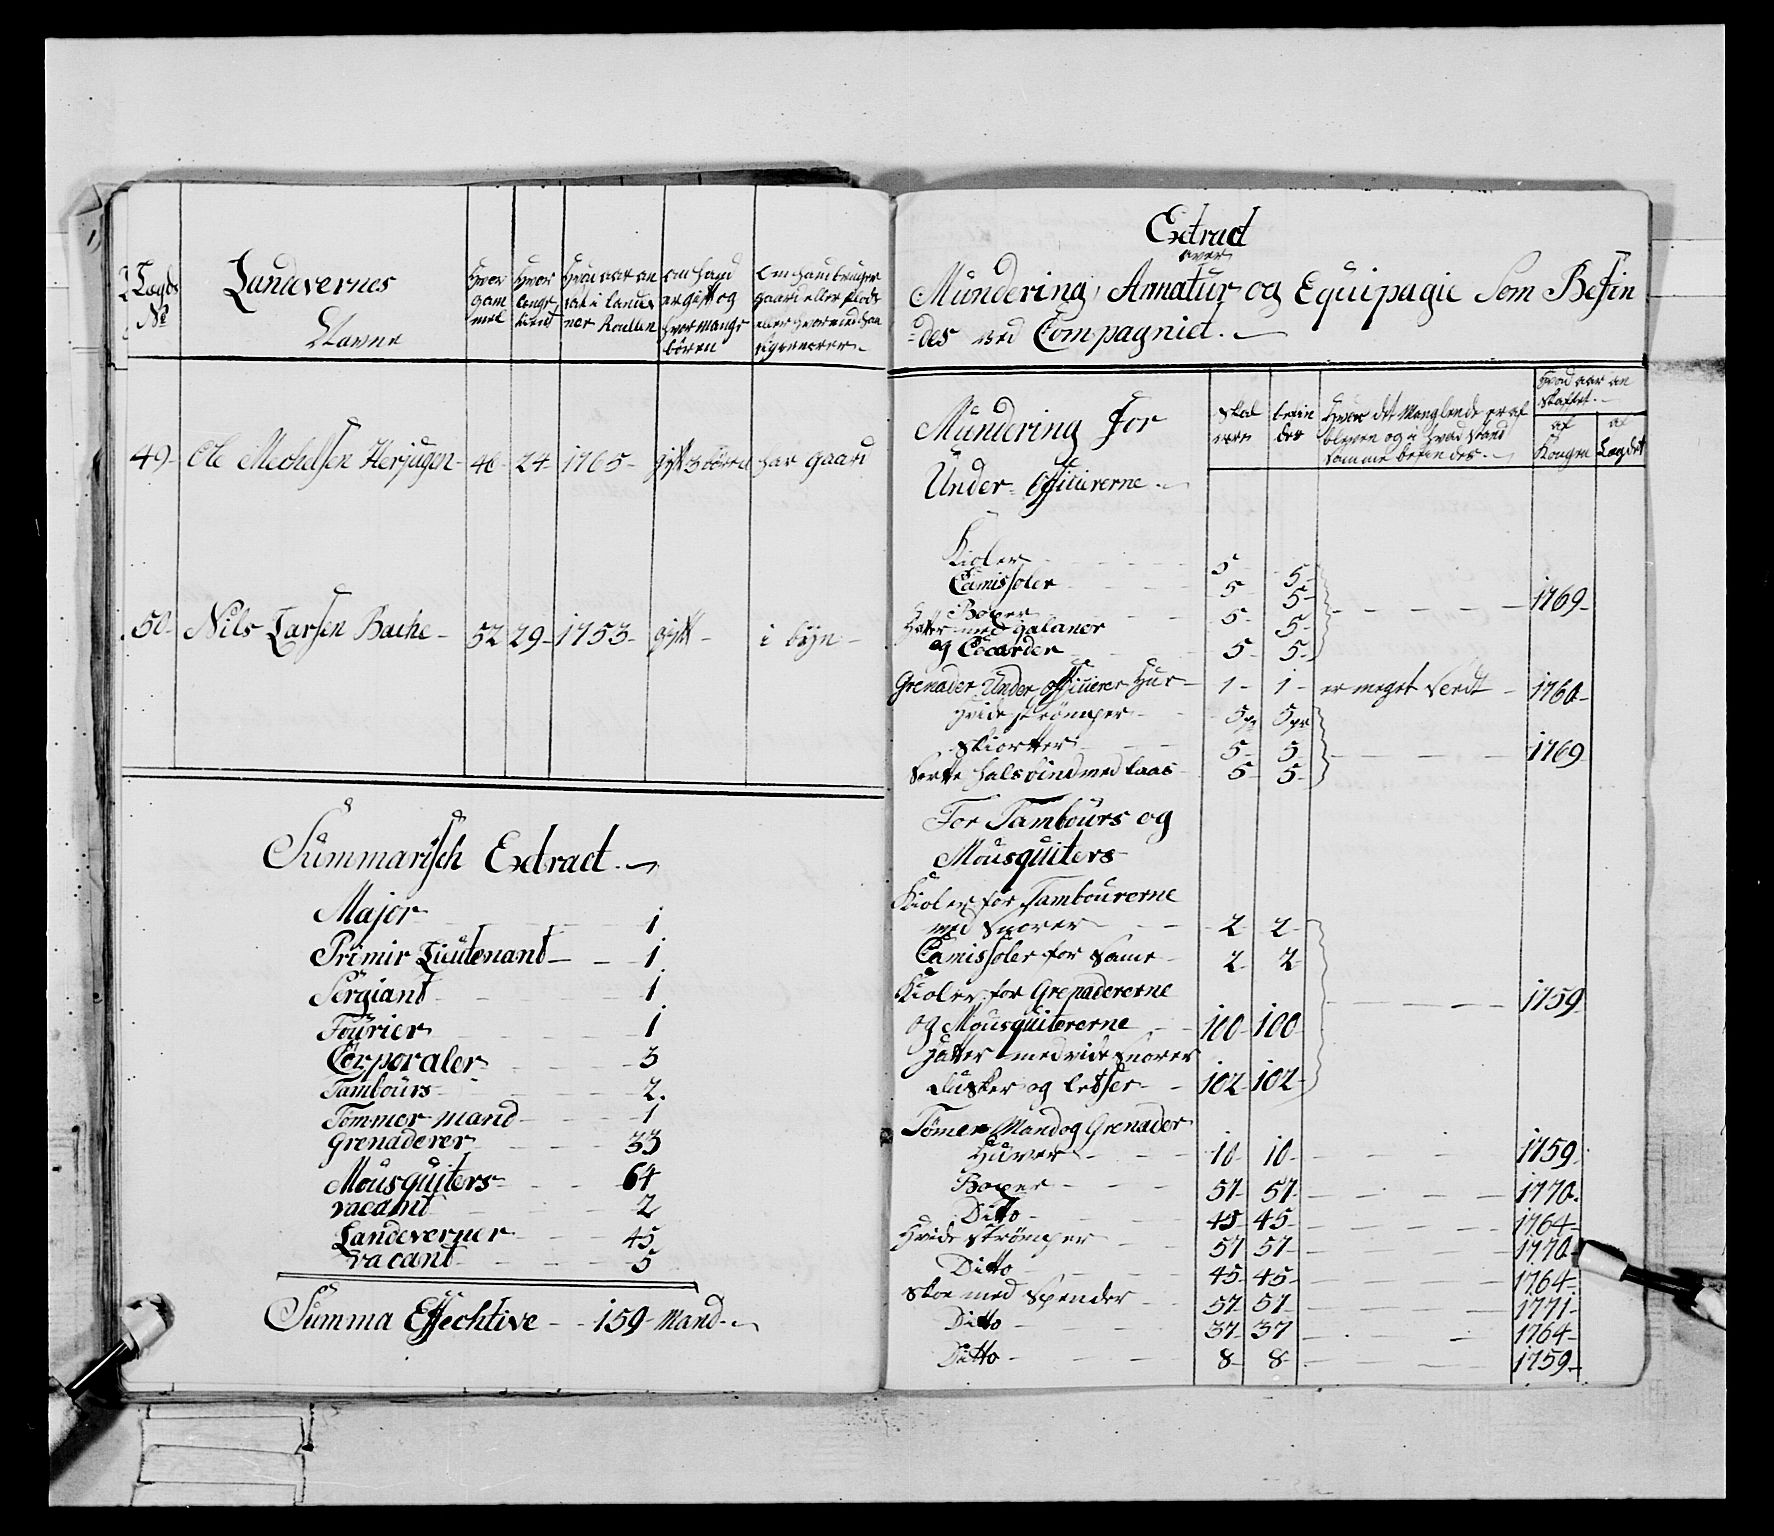 Lægds No
Landvernes Navne
Hvor gam mel
Hvor længe tient
Hvad aar an tat i Landver ner Roullen
om hand er gift og hvor mange børen
Om hand bruger gaard eller plads eller hvor med han sig ernerer
49 Ole Mechelsen Herjugen 46 24 1765 gift 3 børen har gaard
50 Nils Larsen Bache 52 29 1753 gift i byn
Summarisch Extract
Major 1
Primir Lieutenant 1
Sergiant 1
Fourier 1
Corporaler 3
Tambours 2
Tømmer mand 1
Grenaderer 33
Mousquiters 64
vacant 2
Landeverner 45
vacant 5
Summa Effechtive 159 Mand
Extract
over
Mundering, Armatur og Equipagie Som Befin
des ved Compagniet
Mundering for
Under Officiererne
Skal være
befin des
Hvor det Manglende er af bleven og i hvad stand samme befindes
Hvad aar an skaffet
af Kongen
af Lægdet
Kioler 5 5
Camissoler 5 5
Boxer 5 5 1769
Hatter med galaner
og Cocarder 5 5
Grenader Under Officierer Hue 1 1 er meget Slendt 1760
Hvide strømper 5 pr 5 pr
Skiorter 5 5 1769
Sorte Halsbind med laas 5 5
For Tambours og
Mousquiters
Kioler for Tambourerne
med Snorer 2 2
Camissoler for Same 2 2
Kioler for Grenadererne 1759
og Mousquitererne 100 100
Hatter med vide Snorer
Dusker og letser 102 102
Tømer Mand og Grenader
Huver 10 10 1759
Boxer 57 57 1770
Ditto 45 45 1764
Hvide Strømper 57 57 1770
Ditto 45 45 1764
Skoe med Spender 57 57 1771
Ditto 37 37 1764
Ditto 8 8 1759